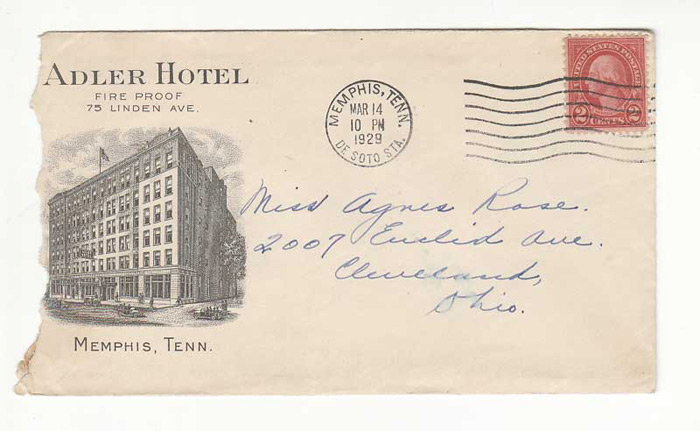 ADLER HOTEL
FIRE PROOF
75 LINDEN AVE.
MEMPHIS, TENN.
MAR 14
10 PM
1929
DE SOTO STA.
UNITED STATES POSTAGE
2 CENTS 2
Miss Agnes Rose.
2007 Euclid Ave.
Cleveland,
Ohio.
MEMPHIS, TENN.